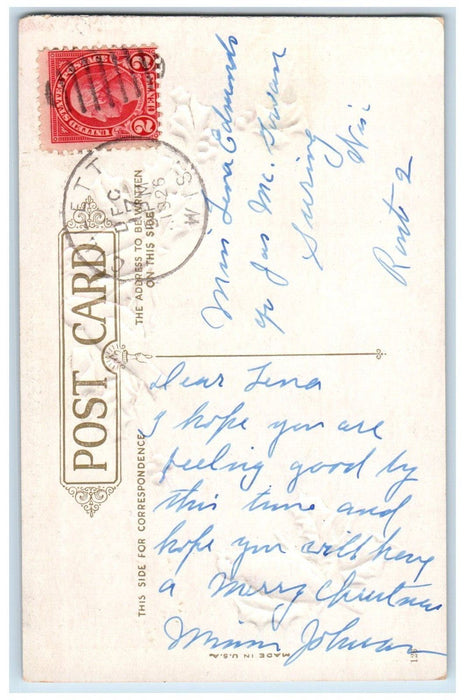 UNITED STATES POSTAGE
2 CENTS 2
DEC
1926
POST CARD
THE ADDRESS TO BE WRITTEN
ON THIS SIDE
THIS SIDE FOR CORRESPONDENCE
Miss Lena Edmunds
c/o Jas Mc.
Suring
Wis.
Rout 2
Dear Lena
I hope you are
feeling good by
this time and
hope you will have
a Merry Christmas
Johnson
MADE IN U.S.A.